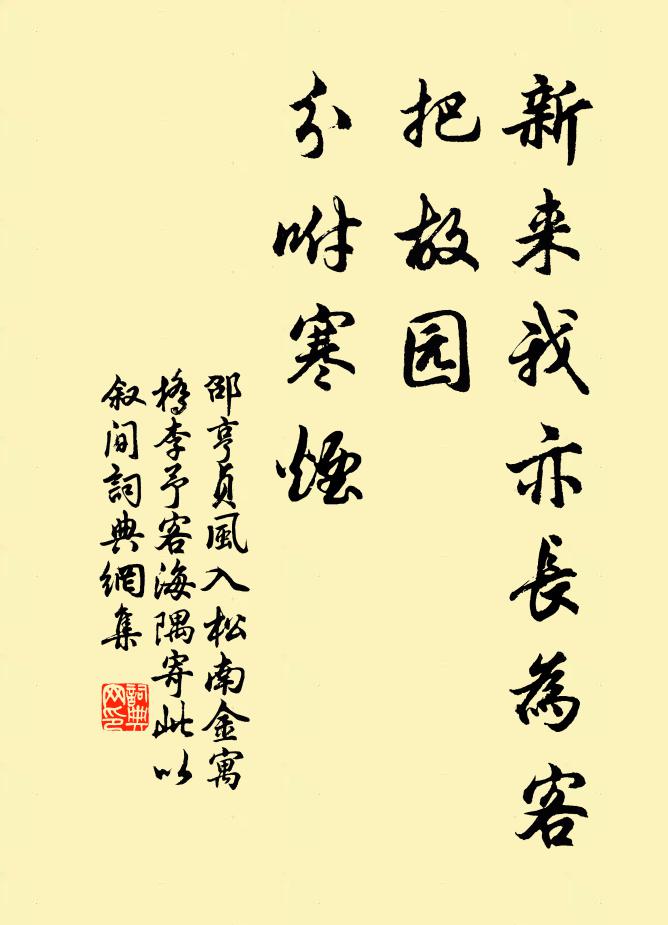 新来我亦長為客
把故园
分咐寒煙
邵亨貞風入松南金寓
檇李予客海隅寄此以
叙间詞典網集
詞典网印